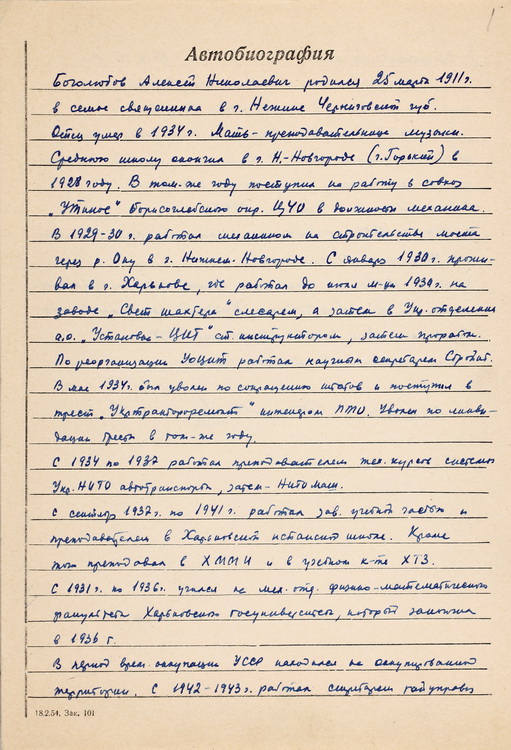 Автобиография
Боголюбов Алексей Николаевич родился 25 марта 1911 г.
в семье священника в г. Нежине Черниговской губ.
Отец умер в 1934 г. Мать - преподавательница музыки.
Среднюю школу окончил в г. Н-Новгороде (г. Горький) в
1928 году. В том-же году поступил на работу в совхоз
„Утиное" Борисоглебского окр. ЦЧО в должности механика.
В 1929-30 г. работал механиком на строительстве моста
через р. Оку в г. Нижнем-Новгороде. С января 1930 г. прожи-
вал в г. Харькове, где работал до июля м-ца 1930 г. на
заводе „Свет шахтера" слесарем, а затем в Укр. отделении
а.о. „Установка - ЦИТ" ст. инструктором, затем прорабом.
По реорганизации УОЦИТ работал научным секретарем
В мае 1934 г. был уволен по сокращению штатов и поступил в
трест „Укртрактороремонт" инженером ППО. Уволен по ликви-
дации треста в том-же году.
С 1934 по 1937 работал преподавателем тех. курсов системы
Укр. НИТО автотранспорта, затем - НИТОмаш.
С сентября 1937 г. по 1941 г. работал зав. учебной частью и
преподавателем в Харьковской школе. Кроме
того преподавал в ХММИ и в учебном к-те ХТЗ.
С 1931 г. по 1936 г. учился на мех. отд. физико-математического
факультета Харьковского госуниверситета, который закончил
в 1936 г.
В период врем. оккупации УССР находился на оккупированной
территории. С 1942-1943 г. работал секретарем райуправы
18.2.54. Зак. 101